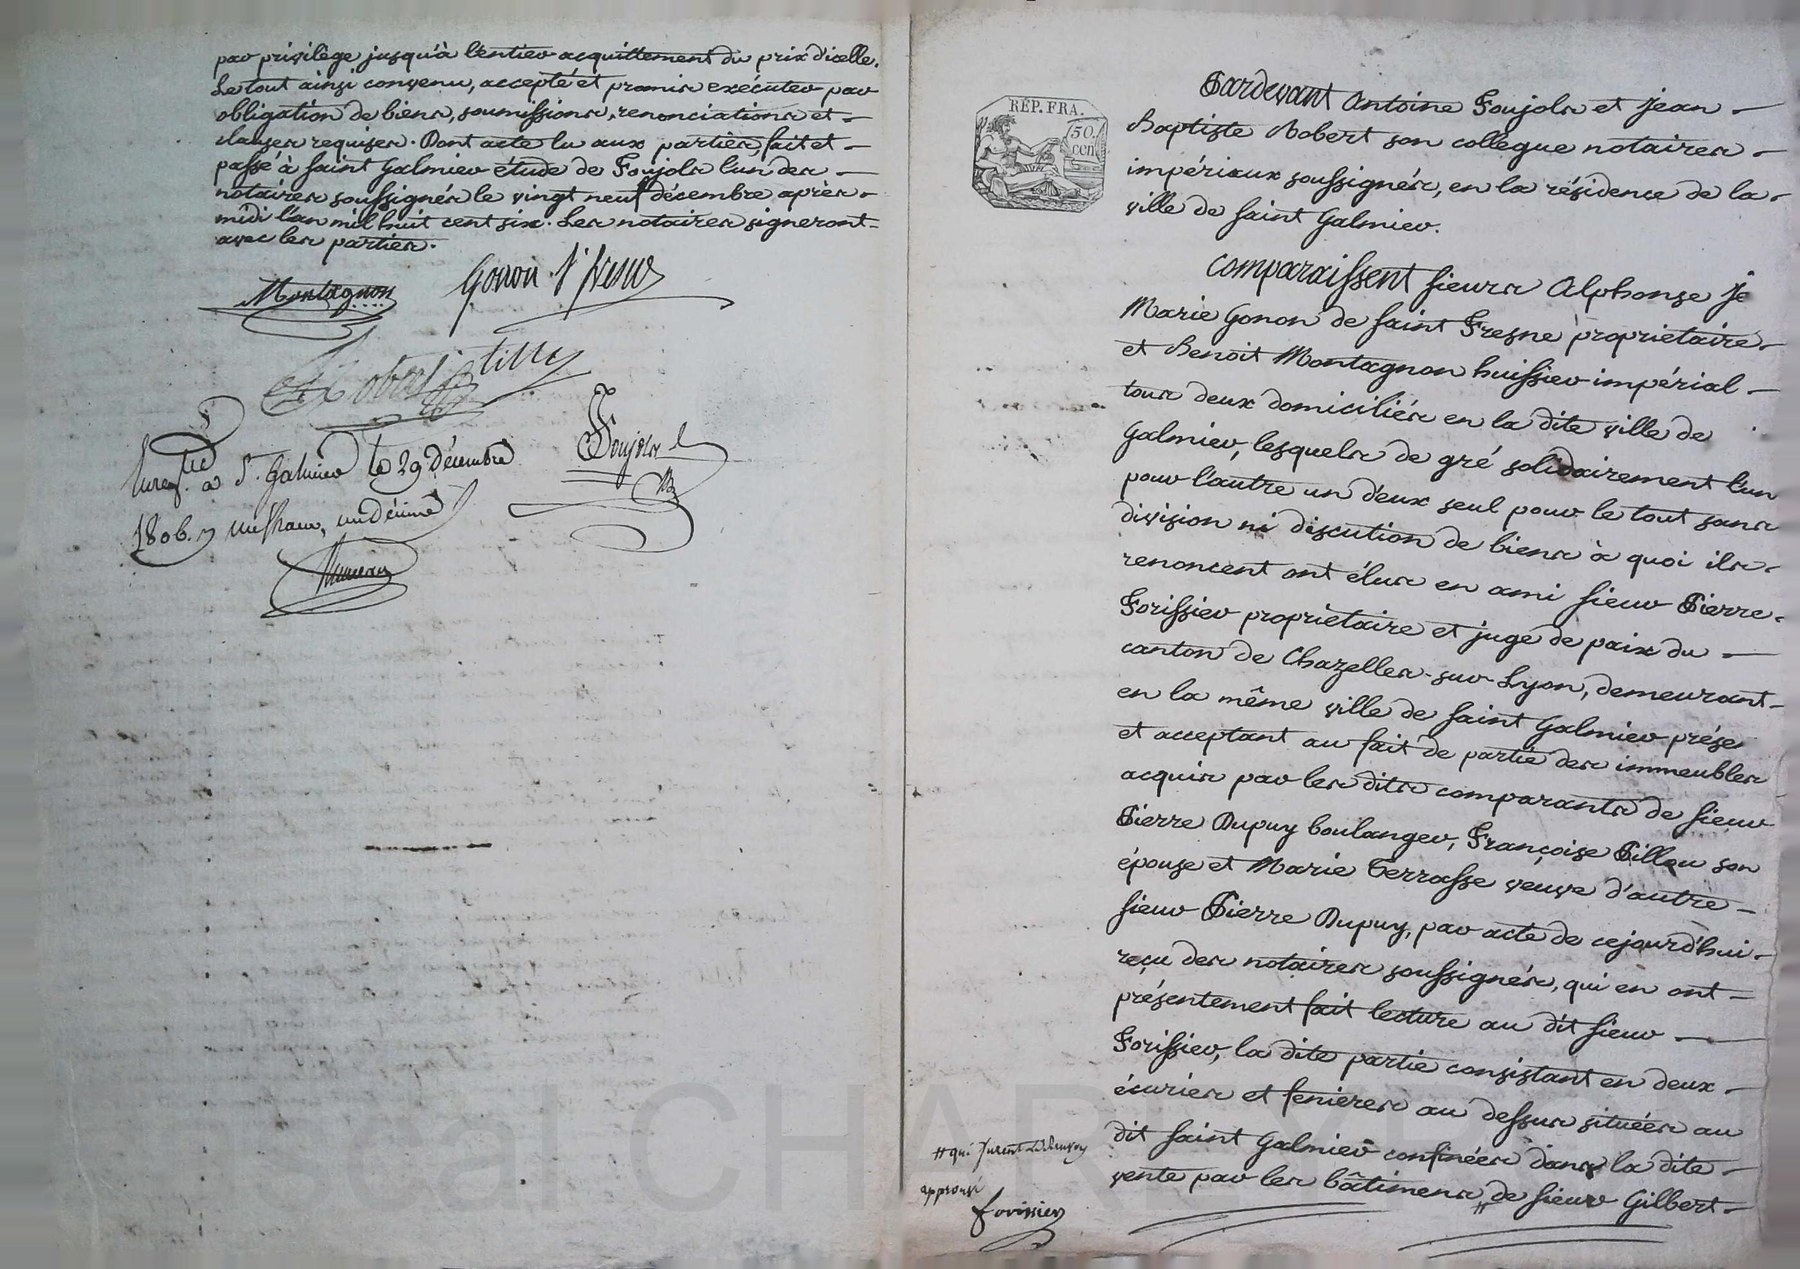 par privilège jusqu'à l'entier acquittement du prix d'icelle.
Le tout ainsi convenu, accepté et promis exécuter par
obligation de biens, soumissions, renonciations et
clauses requises. Dont acte lu aux parties, fait et
passé à Saint Galmier étude de Foujols l'un des
notaires soussignés le vingt neuf décembre après
midi l'an mil huit cent six. Les notaires signeront
avec les parties.
Montagnon Gonon St fresne
Robert
Foujols
Enreg. à St. Galmier le 29 Décembre
1806.
RÉP. FRA.
50.
cen
Pardevant Antoine Foujols et Jean
Baptiste Robert son collègue notaires
impériaux soussignés, en la résidence de la
ville de Saint Galmier.
Comparaissent Sieurs Alphonse Je
Marie Gonon de Saint Fresne propriétaire
et Benoit Montagnon huissier impérial
tous deux domiciliés en la dite ville de
Galmier, lesquels de gré solidairement l'un
pour l'autre un d'eux seul pour le tout sans
division ni discution de biens à quoi ils
renoncent ont élus en ami Sieur Pierre
Forissier propriétaire et juge de paix du
canton de Chazelles-sur-Lyon, demeurant
en la même ville de Saint Galmier prése
et acceptant au fait de partie des immeubles
acquis par les dits comparants de Sieur
Pierre Dupuy boulanger, Françoise Pillou son
épouse et Marie Terrasse veuve d'autre
Sieur Pierre Dupuy, par acte de cejourd'hui
reçu des notaires soussignés, qui en ont
présentement fait lecture au dit Sieur
Forissier, la dite partie consistant en deux
écuries et fenières au dessus situées au
dit Saint Galmier confinées dans la dite
vente par les bâtimens # de Sieur Gilbert
# qui furent
approuvé
forissier